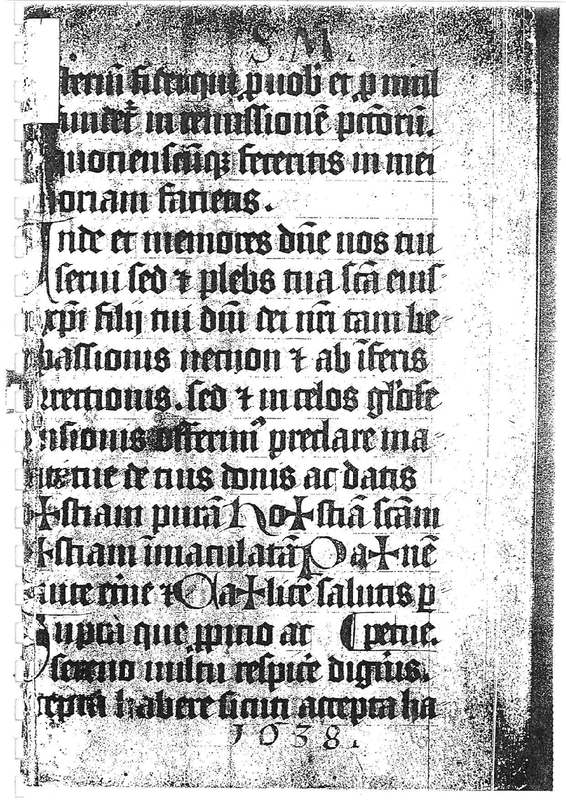 S.M.
teriũ fidei qui ꝓ uob̃ et ꝓ mul
undet᷑ in remissionẽ pctõrũ.
quotienscũqꝫ feceritis in mei
oriam facietis.
Inde et memores dñe nos tui
serui sed ⁊ plebs tua scã eius
xp̃i filij tui dñi dei nr̃i tam be
passionis necnon ⁊ ab ĩferis
urrectionis. sed ⁊ in celos gl̃ose
nsionis offerimꝰ preclare ma
tue de tuis donis ac datis
✠stiam purã ho✠stiã scãm
✠stiam ĩmaculatã Pa✠nẽ
uite et̃ne ⁊ Ca✠licẽ salutis ꝑ
Supra que ꝓpitio ac ¶ petue.
sereno uultu respicẽ digñis.
cepta habere sicuti accepta ha
1038.